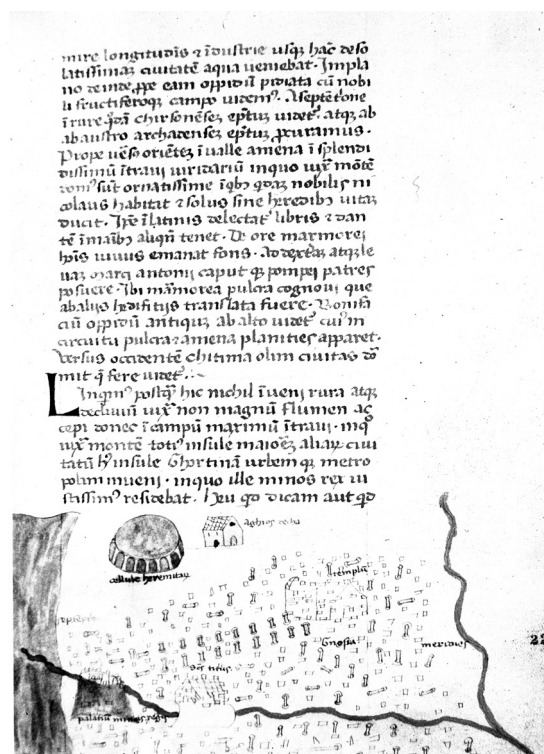 mire longitudīs ⁊ īdustrie usqꝫ hāc deso
latissimaꝫ ciuitatē aqua ueniebat. Impla
no deinde ꝓpe eam oppidū pdiata cū nobi
li fructiferoqꝫ campo videmꝰ. Aseptētōne
ī rure qdā chirsonēseꝫ epꝰtuꝫ videt. atqꝫ ab
ab austro archadenseꝫ epꝰtuꝫ
Prope orientēꝫ ī valle amena ī splendi
dissimū ītraui uiridariū inquo uixꝫ mōtē
sūt ornatissime ī qbꝫ qdaꝫ nobilis ni
colaus habitat ⁊ solus sine heredibꝫ vitaꝫ
ducit. ī latinis delectat libris ⁊ dan
tē ī maībꝫ aliqn̄ tenet. De ore marmorei
hoīs uiuus emanat fons. Ad dexterāꝫ atqꝫ le
uaꝫ marci antonii caput qꝫ pompei patres
posuere. Ibi mārmorea pulcra cognoui que
ab aliis hedifitiis translata fuere. Bonifa
ciū oppidū antiquꝫ ab alto videt cuiꝰ in
circuitu pulcra ⁊ amena planities apparet.
Versus occidentē chitima olim ciuitas dō
mit q̄ fere uidet.
Linqmꝰ postqꝫ hic nichil īueni rura atqꝫ
decliuiū uixꝫ non magnū flumen ac
cepi donec ī campū maximū ītraui. inqꝰ
uixꝫ montē totiꝰ insule maioreꝫ aliaꝝ ciui
tatū hꝰ insule Ghortinā urbem qꝫ metro
polim inueni. inquo ille minos rex iu
stissimꝰ residebat. Heu qd dicam aut qd
cellule heremitaꝝ
templū
Gnosia
meridies
scs titus
palatiū minois regis
22